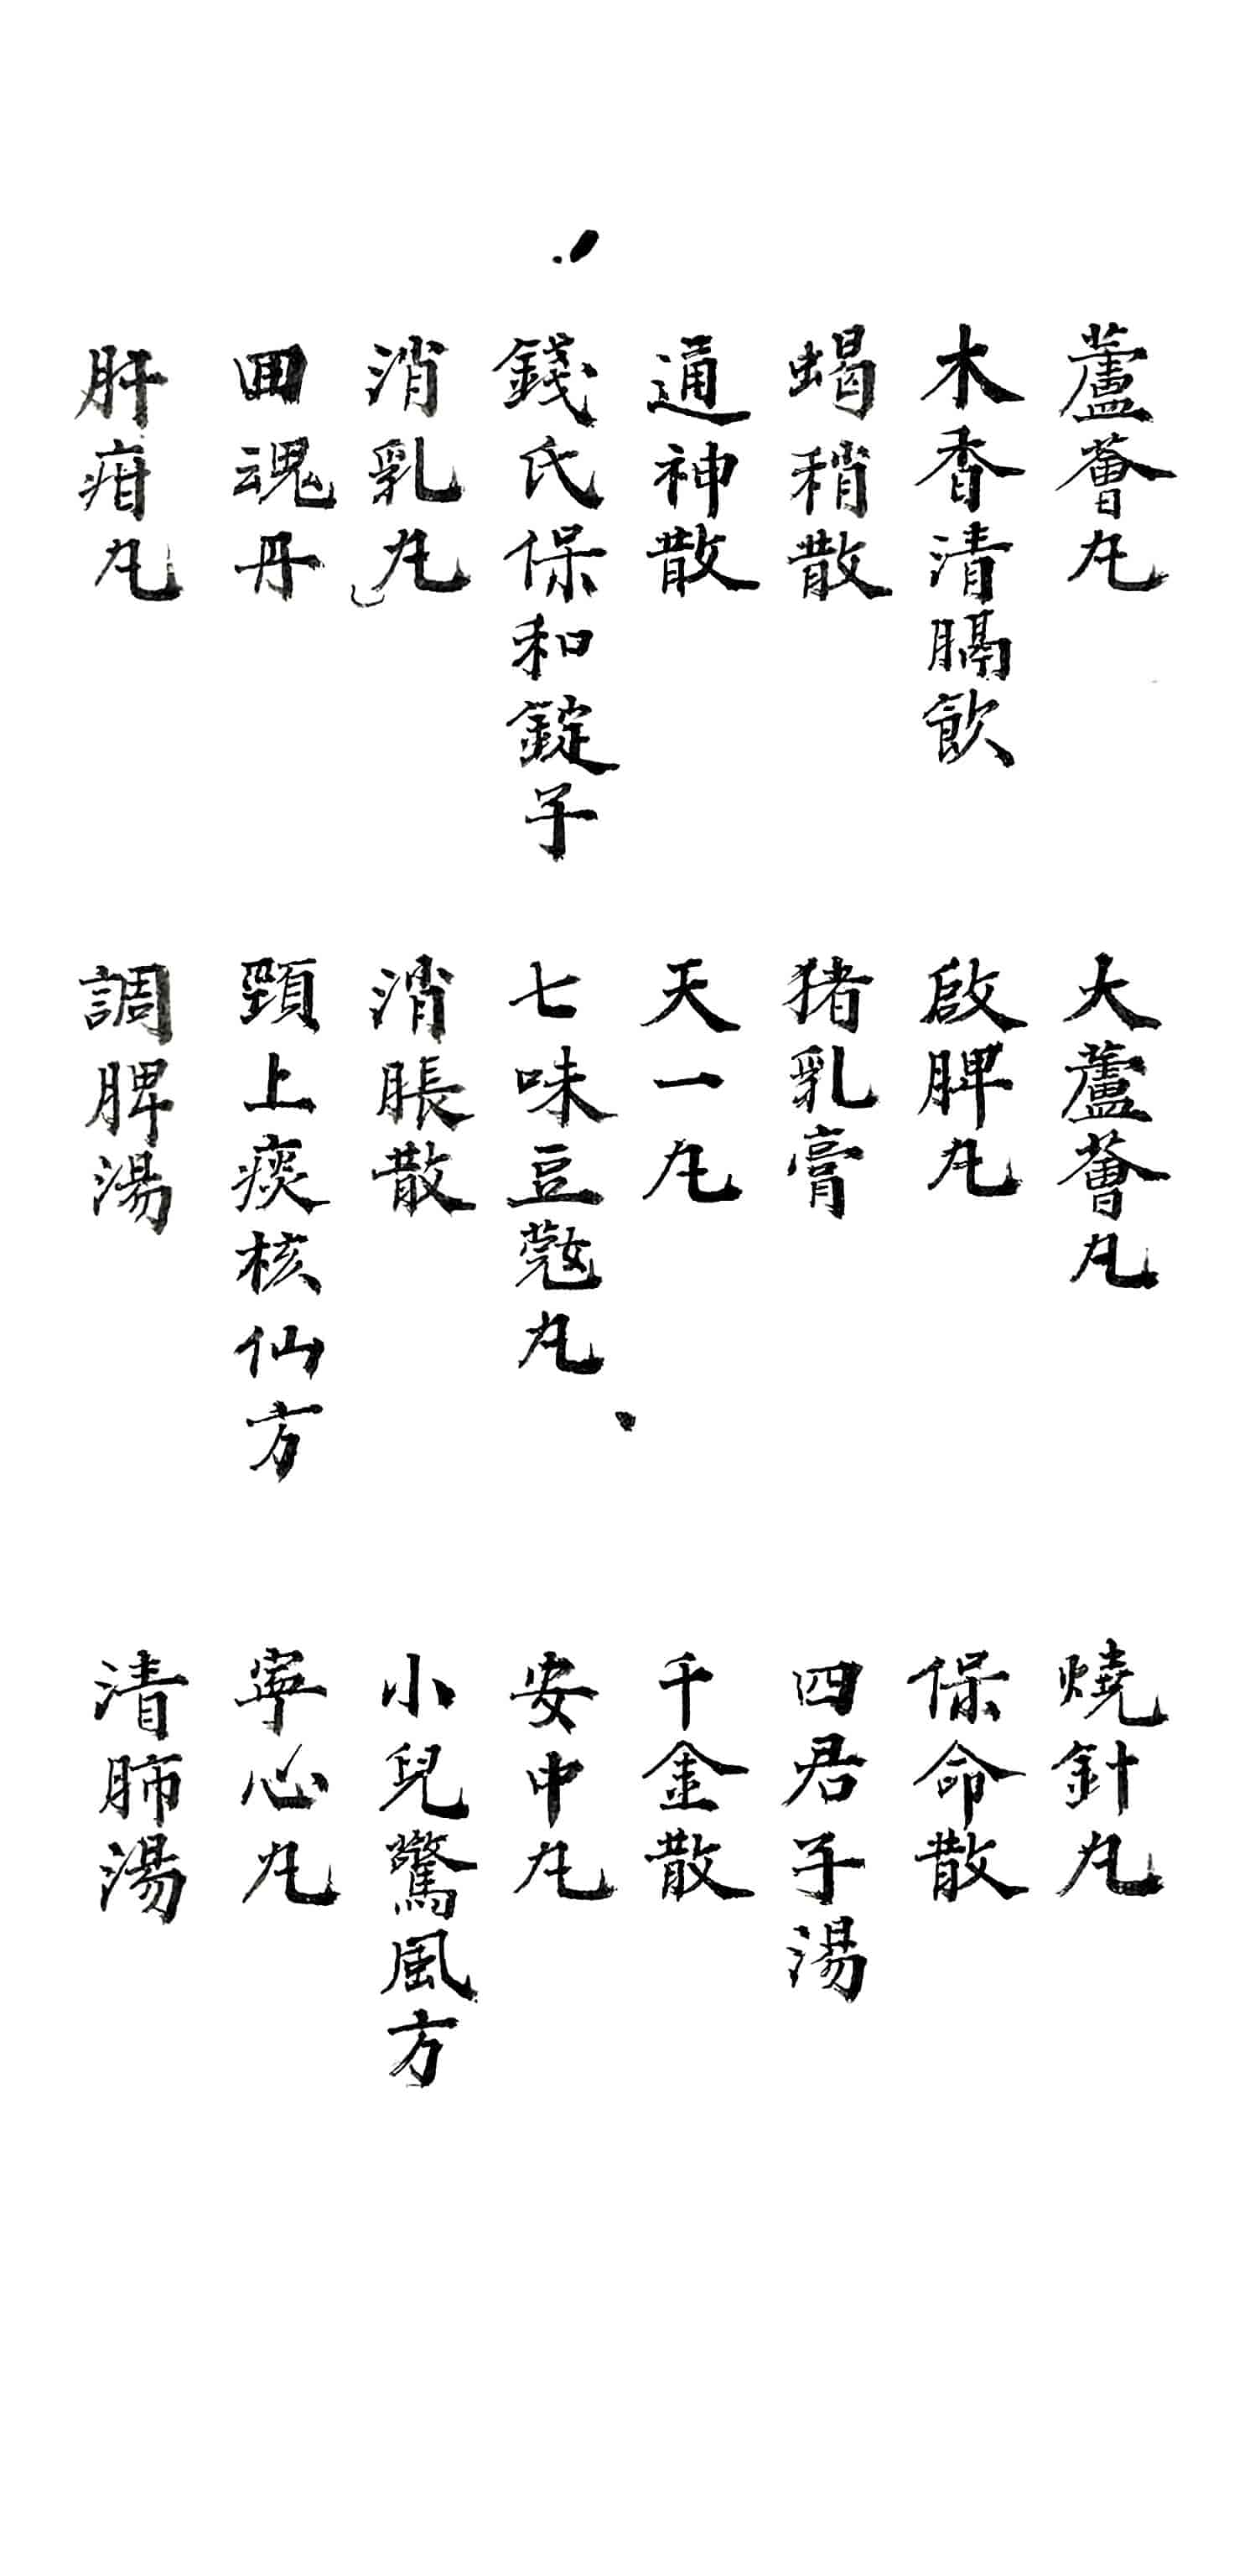 蘆薈丸
大蘆薈丸
燒針丸
木香清膈飲
啟脾丸
保命散
蝎稍散
猪乳膏
四君子湯
通神散
天一丸
千金散
錢氏保和錠子
七味豆蔻丸
安中丸
消乳丸
消脹散
小兒驚風方
囬魂丹
頸上痰核仙方
寧心丸
肝疳丸
調脾湯
清肺湯